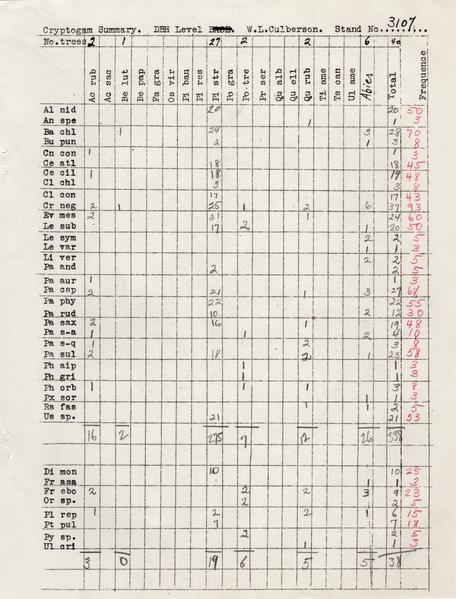 Cryptogam Summary. DBH Level W.L.Culberson. Stand No. 3107
No.trees 2 1 27 2 2 6 40
Ac rub Ac sac Be lut Be pap Fa gra Os vir Pi ban Pi res Pi str Po gra Po tre Pr ser Qu alb Qu ell Qu rub Ti ame Ts can Ul ame Abies Total Frequence
Al nid 20 20 50
An spe 1 1 3
Ba chl 1 24 3 28 70
Bu pun 2 1 3 8
Cn con 1 1 3
Ce atl 18 18 45
Ce cil 1 18 19 48
Cl chl 3 3 8
Cl con 17 17 43
Cr neg 2 1 25 1 2 6 37 93
Ev mes 2 21 1 24 60
Le sub 17 2 1 20 50
Le sym 2 2 5
Le var 1 1 3
Li ver 2 2 5
Pa and 2 2 5
Pa aur 1 1 3
Pa cap 2 21 1 3 27 68
Pa phy 22 22 55
Pa rud 10 2 12 30
Pa sax 2 16 1 19 48
Pa s-a 1 1 2 4 10
Pa s-q 1 2 3 8
Pa sul 2 18 2 1 23 58
Ph aip 1 1 3
Ph gri 1 1 3
Ph orb 1 1 1 3 8
Px sor 1 1 3
Ra fas 1 1 2 5
Us sp. 21 21 53
16 2 275 7 12 26 338
Di mon 10 10 25
Fr asa 1 1 3
Fr ebo 2 2 2 3 9 23
Or sp. 2 2 5
Pl rep 1 2 2 1 6 15
Pt pul 7 7 18
Py sp. 2 2 5
Ul cri 1 1 3
3 0 19 6 5 5 38